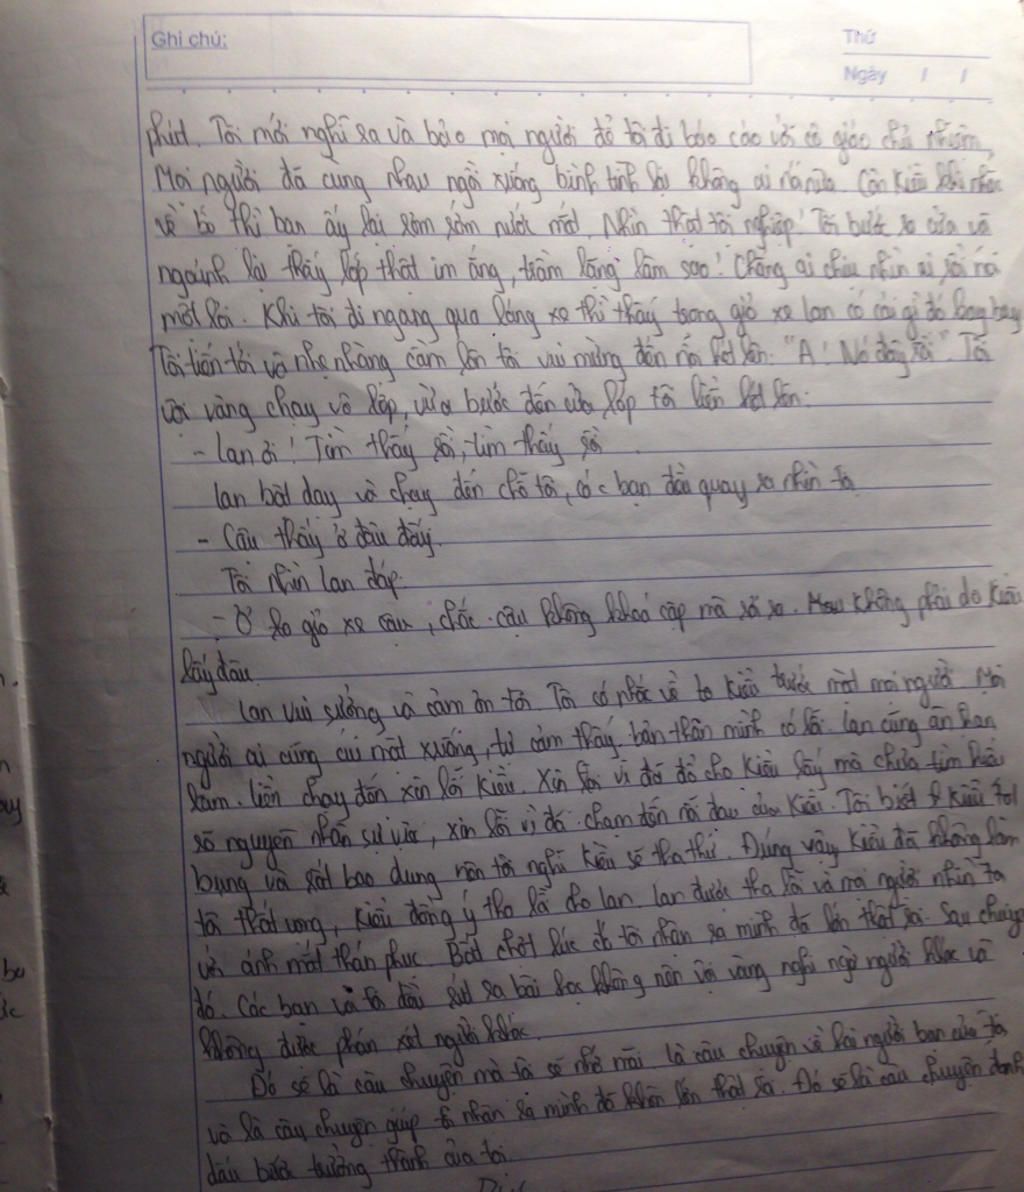 Ghi chú:
Thứ
Ngày / /
phút. Tôi mới nghĩ ra và bảo mọi người để tôi đi báo cáo với cô giáo chủ nhiệm
Mọi người đã cùng nhau ngồi xuống bình tĩnh lại không ai nói nữa. Còn Kiều khi nhắc
về bố thì bạn ấy lại rơm rớm nước mắt. Nhìn thật tội nghiệp! Tôi bước ra cửa và
ngoảnh lại thấy lớp thật im ắng, trầm lặng làm sao! Chẳng ai chịu nhìn ai, rồi nói
một lời. Khi tôi đi ngang qua láng xe thì thấy trong giỏ xe Lan có cái gì đó bay bay
Tôi tiến tới và nhẹ nhàng cầm lên tôi vui mừng đến nỗi hét lên: "A! Nó đây rồi". Tôi
vội vàng chạy vô lớp, vừa bước đến cửa lớp tôi liền hét lên:
- Lan ơi! Tìm thấy rồi, tìm thấy rồi
Lan bật dậy và chạy đến chỗ tôi, các bạn đều quay ra nhìn ta
- Cậu thấy ở đâu đấy.
Tôi nhìn Lan đáp:
- Ở giỏ xe cậu, chắc cậu không khoá cặp mà rớt ra. không phải do Kiều
lấy đâu
Lan vui sướng và cảm ơn tôi. Tôi có nhắc về Kiều trước mặt mọi người. Mọi
người ai cũng cúi mặt xuống, tự cảm thấy bản thân mình có lỗi. Lan cũng ân hận
lắm. liền chạy đến xin lỗi Kiều. Xin lỗi vì đã đổ cho Kiều lấy mà chưa tìm hiểu
rõ nguyên nhân sự việc, xin lỗi vì đã chạm đến nỗi đau của Kiều. Tôi biết Kiều tốt
bụng và rất bao dung nên tôi nghĩ Kiều sẽ tha thứ. Đúng vậy Kiều đã không làm
tôi thất vọng, Kiều đồng ý tha lỗi cho Lan. Lan được tha lỗi và mọi người nhìn ta
với ánh mắt thán phục. Bất chợt lúc đó tôi nhận ra mình đã lớn thật rồi. Sau chuyện
đó. Các bạn và tôi đều rút ra bài học không nên vội vàng nghi ngờ người khác và
không được phán xét người khác.
Đó sẽ là câu chuyện mà tôi sẽ nhớ mãi là câu chuyện về hai người bạn của tôi
và là câu chuyện giúp tôi nhận ra mình đã khôn lớn thật rồi. Đó sẽ là câu chuyện đánh
dấu bước trưởng thành của tôi.